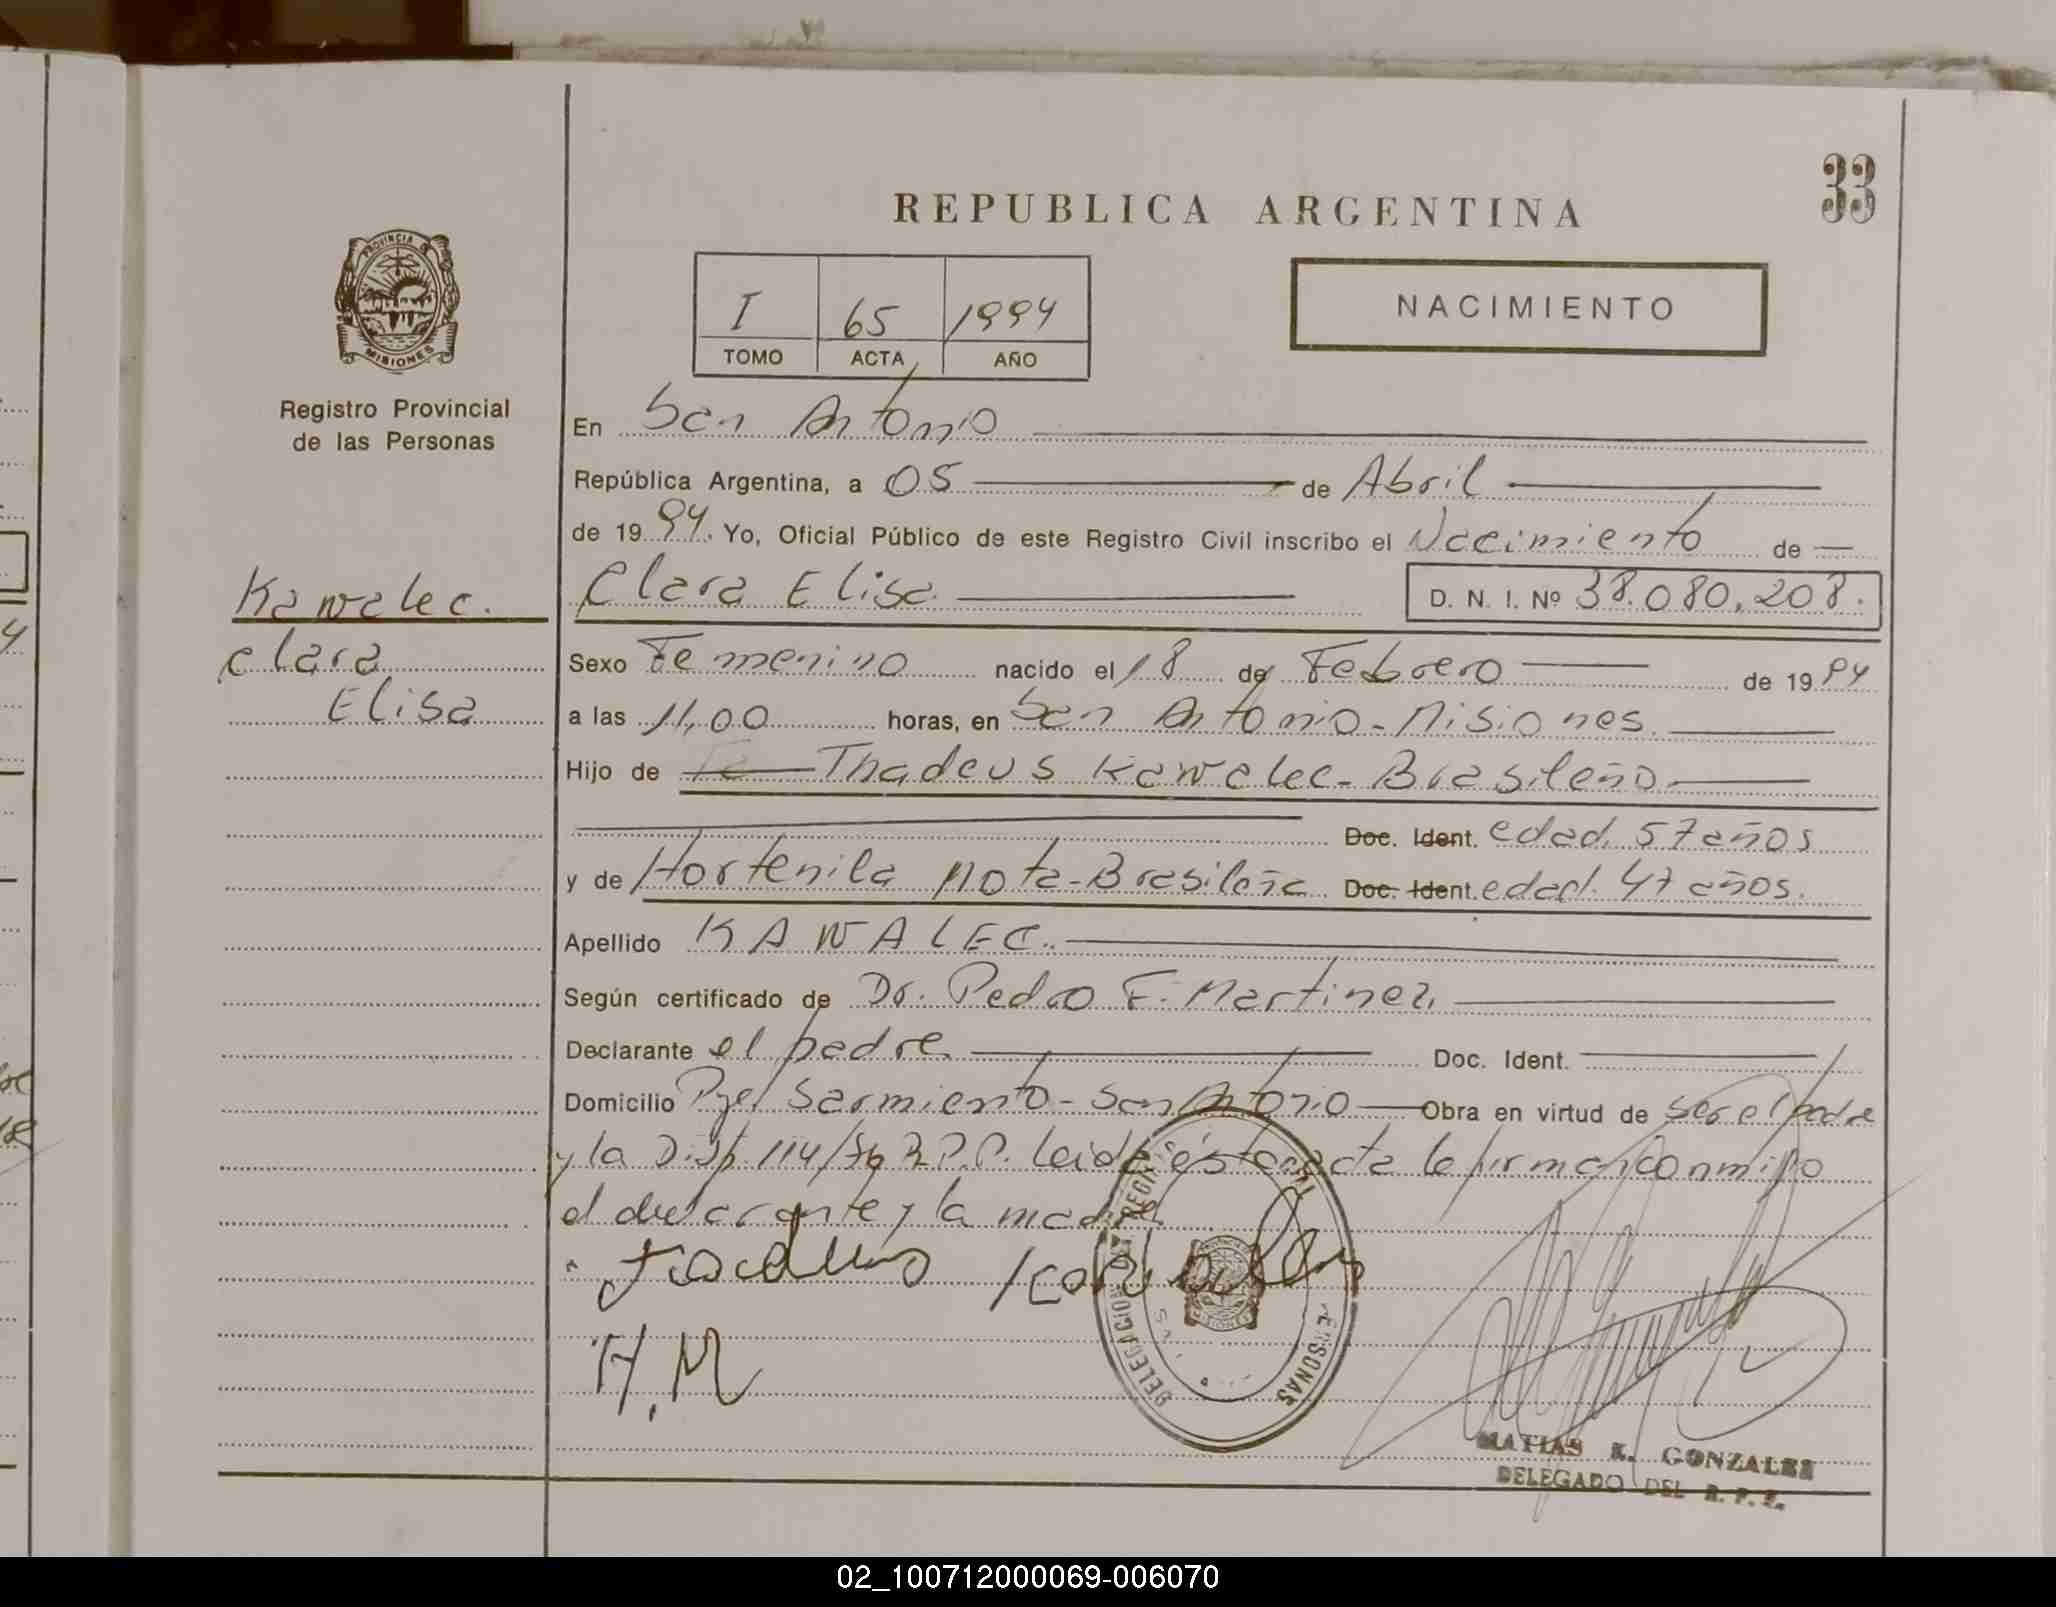 33
REPUBLICA ARGENTINA
PROVINCIA DE
MISIONES
Registro Provincial
de las Personas
I 65 1994
TOMO ACTA AÑO
NACIMIENTO
En San Antonio
República Argentina, a 05 de Abril
de 1994. Yo, Oficial Público de este Registro Civil inscribo el Nacimiento de
Kawalec.
Clara Elisa.
D. N. I. Nº 38.080.208.
Clara
Elisa
Sexo Femenino nacido el 18 de Febrero de 1994
a las 11,00 horas, en San Antonio - Misiones.
Hijo de Thadeus Kawalec - Brasileño.
Doc. Ident. edad. 57 años
y de Hortenila Mota - Brasileña Doc. Ident. edad. 47 años.
Apellido KAWALEC.
Según certificado de Dr. Pedro F. Martinez.
Declarante el padre. Doc. Ident.
Domicilio Pje. Sarmiento - San Antonio Obra en virtud de ser el padre
y la Disp. 114/76 R.P.P. leida ésta acta la firman conmigo
el declarante y la madre.
H. M
DELEGACION REGISTRO PERSONAS
MISIONES
MATIAS R. GONZALEZ
DELEGADO DEL R. P. P.
02_100712000069-006070